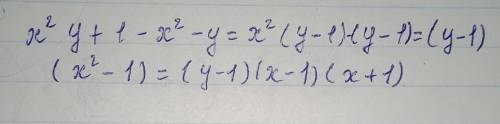 x² y + 1 - x² - y = x² (y-1)-(y-1) = (y-1)
(x² - 1) = (y-1)(x-1)(x+1)